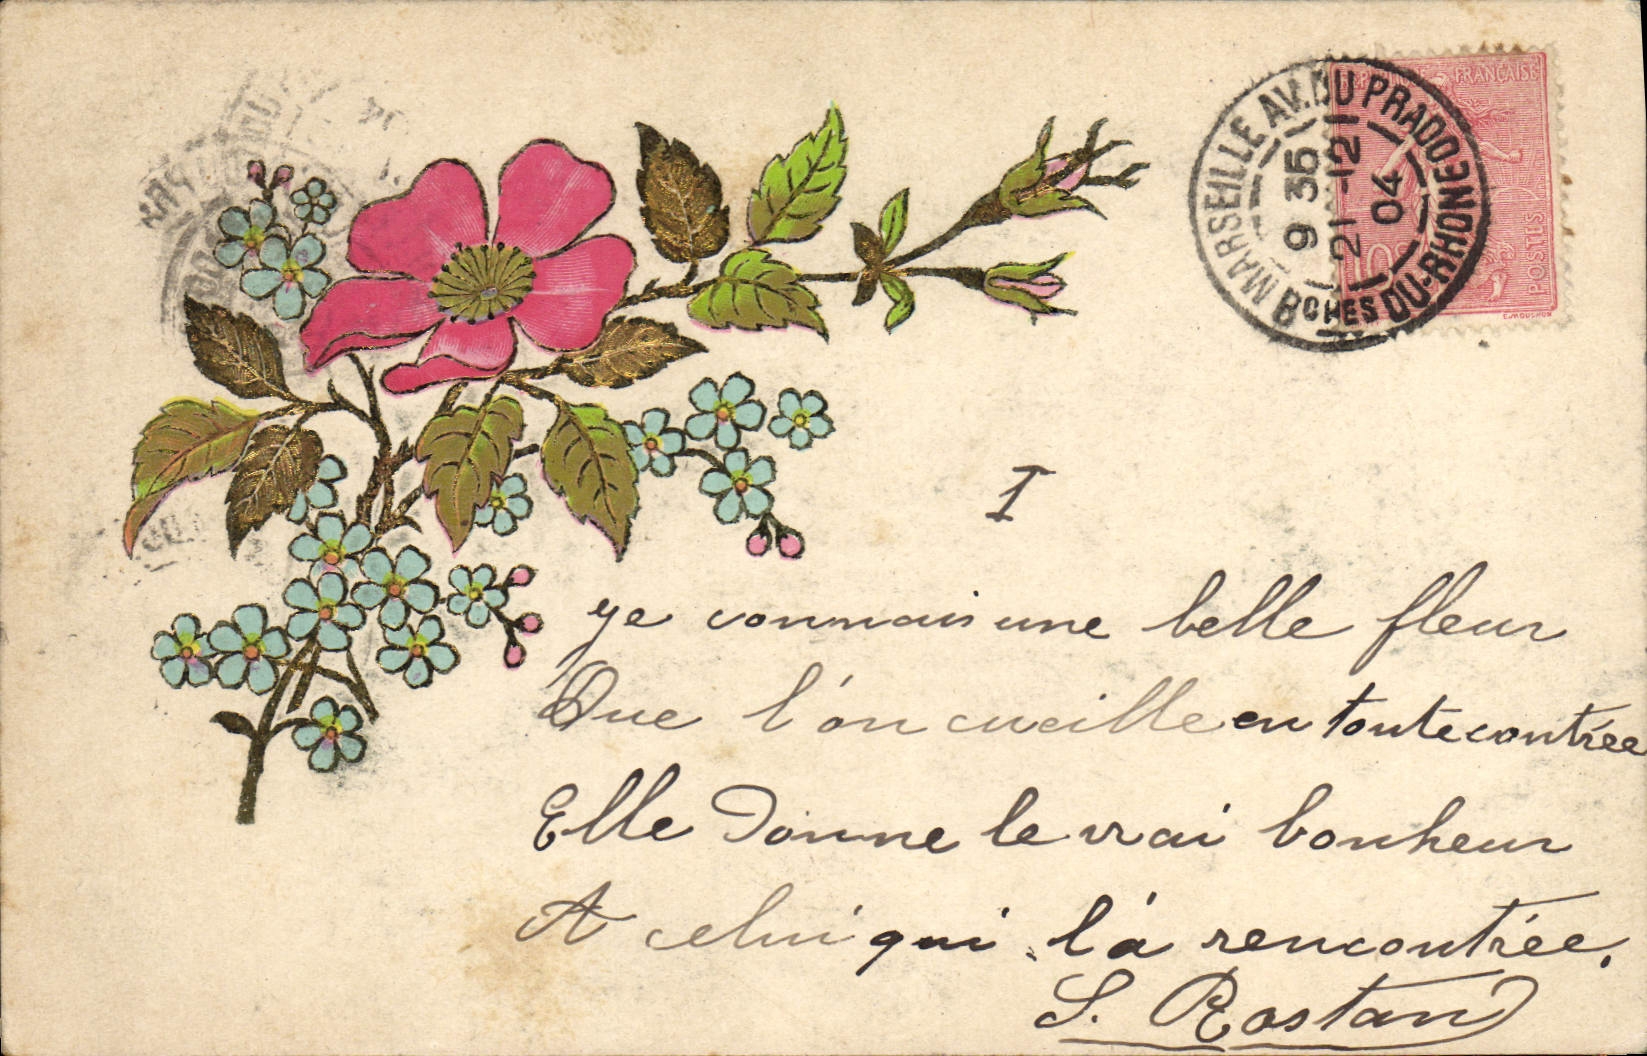 MARSEILLE AV. DU PRADO
9 35
21 -12
04
BCHES DU-RHONE
FRANÇAISE
POSTES
I
ye connais une belle fleur
Que l'on cueille en toute contrée
Elle Donne le vrai bonheur
A celui qui l'a rencontrée.
S. Rostan